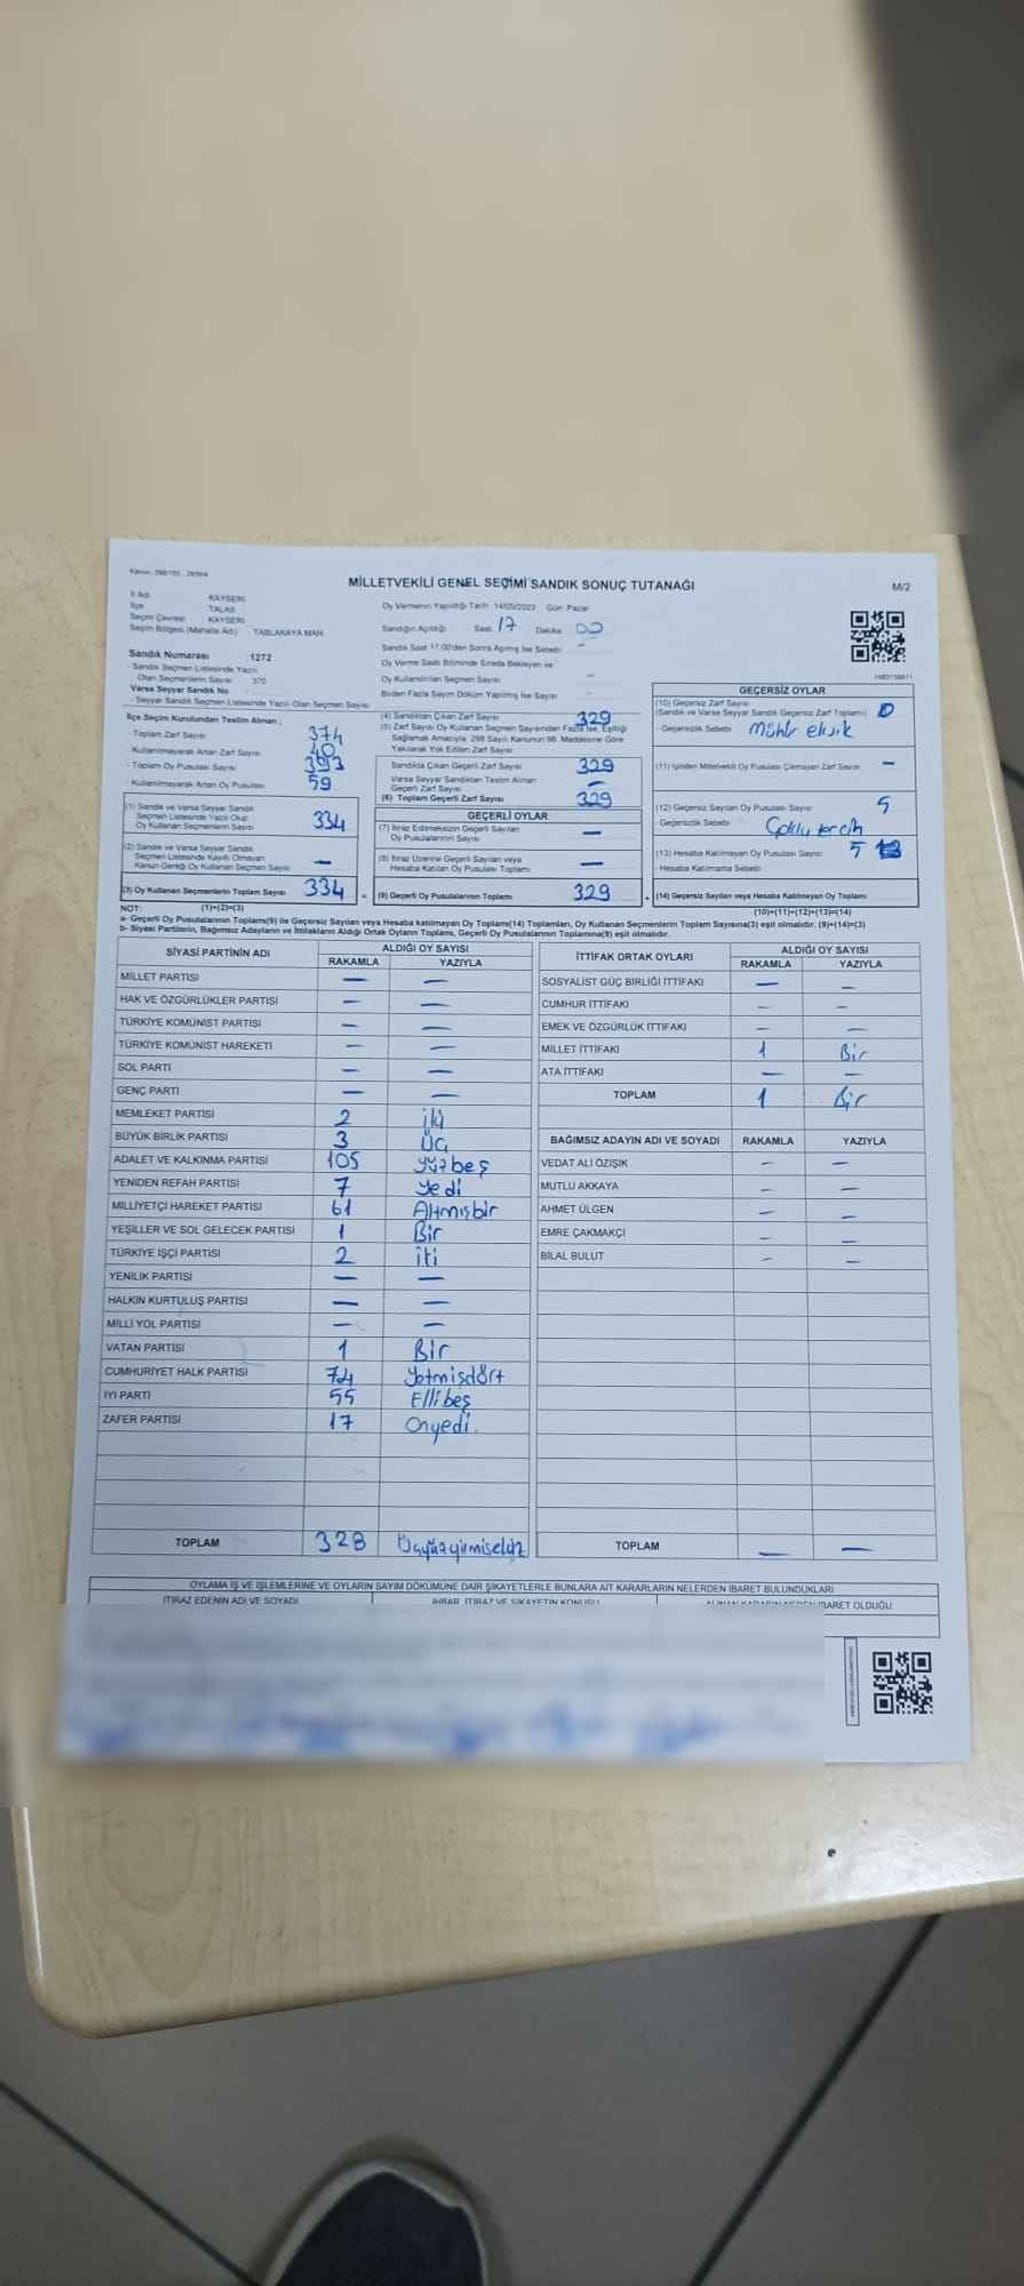 MİLLETVEKİLİ GENEL SEÇİMİ SANDIK SONUÇ TUTANAĞI
M/2
İl Adı KAYSERİ
İlçe TALAS
Seçim Çevresi KAYSERİ
Seçim Bölgesi (Mahalle Adı) TABLAKAYA MAH.
Oy Vermenin Yapıldığı Tarih 14/05/2023 Gün Pazar
Sandığın Açıldığı Saat 17 Dakika 00
Sandık Saat 17.00'den Sonra Açılmış İse Sebebi -
Oy Verme Saati Bitiminde Sırada Bekleyen ve
Oy Kullandırılan Seçmen Sayısı -
Birden Fazla Sayım Döküm Yapılmış İse Sayısı -
Sandık Numarası 1272
- Sandık Seçmen Listesinde Yazılı
Olan Seçmenlerin Sayısı 370
Varsa Seyyar Sandık No
- Seyyar Sandık Seçmen Listesinde Yazılı Olan Seçmen Sayısı
İlçe Seçim Kurulundan Teslim Alınan ;
- Toplam Zarf Sayısı 374
- Kullanılmayarak Artan Zarf Sayısı 40
- Toplam Oy Pusulası Sayısı 393
- Kullanılmayarak Artan Oy Pusulası 59
(1) Sandık ve Varsa Seyyar Sandık
Seçmen Listesinde Yazılı Olup
Oy Kullanan Seçmenlerin Sayısı 334
(2) Sandık ve Varsa Seyyar Sandık
Seçmen Listesinde Kayıtlı Olmayan
Kanun Gereği Oy Kullanan Seçmen Sayısı -
(3) Oy Kullanan Seçmenlerin Toplam Sayısı 334
(4) Sandıktan Çıkan Zarf Sayısı 329
(5) Zarf Sayısı Oy Kullanan Seçmen Sayısından Fazla İse, Eşitliği
Sağlamak Amacıyla, 298 Sayılı Kanunun 98. Maddesine Göre
Yakılarak Yok Edilen Zarf Sayısı -
Sandıkta Çıkan Geçerli Zarf Sayısı 329
Varsa Seyyar Sandıktan Teslim Alınan
Geçerli Zarf Sayısı -
(6) Toplam Geçerli Zarf Sayısı 329
GEÇERLİ OYLAR
(7) İtiraz Edilmeksizin Geçerli Sayılan
Oy Pusulalarının Sayısı -
(8) İtiraz Üzerine Geçerli Sayılan veya
Hesaba Katılan Oy Pusulası Toplamı -
(9) Geçerli Oy Pusulalarının Toplamı 329
GEÇERSİZ OYLAR
(10) Geçersiz Zarf Sayısı
(Sandık ve Varsa Seyyar Sandık Geçersiz Zarf Toplamı) 0
- Geçersizlik Sebebi mühür eksik
(11) İçinden Milletvekili Oy Pusulası Çıkmayan Zarf Sayısı -
(12) Geçersiz Sayılan Oy Pusulası Sayısı 5
Geçersizlik Sebebi Çoklu tercih
(13) Hesaba Katılmayan Oy Pusulası Sayısı 5
Hesaba Katılmama Sebebi
(14) Geçersiz Sayılan veya Hesaba Katılmayan Oy Toplamı
NOT: (1)+(2)=(3)
(10)+(11)+(12)+(13)=(14)
a- Geçerli Oy Pusulalarının Toplamı(9) ile Geçersiz Sayılan veya Hesaba katılmayan Oy Toplamı(14) Toplamları, Oy Kullanan Seçmenlerin Toplam Sayısına(3) eşit olmalıdır. (9)+(14)=(3)
b- Siyasi Partilerin, Bağımsız Adayların ve İttifakların Aldığı Ortak Oyların Toplamı, Geçerli Oy Pusulalarının Toplamına(9) eşit olmalıdır.
SİYASİ PARTİNİN ADI ALDIĞI OY SAYISI
RAKAMLA YAZIYLA
MİLLET PARTİSİ — —
HAK VE ÖZGÜRLÜKLER PARTİSİ — —
TÜRKİYE KOMÜNİST PARTİSİ — —
TÜRKİYE KOMÜNİST HAREKETİ — —
SOL PARTİ — —
GENÇ PARTİ — —
MEMLEKET PARTİSİ 2 iki
BÜYÜK BİRLİK PARTİSİ 3 Üç
ADALET VE KALKINMA PARTİSİ 105 yüzbeş
YENİDEN REFAH PARTİSİ 7 yedi
MİLLİYETÇİ HAREKET PARTİSİ 61 Altmışbir
YEŞİLLER VE SOL GELECEK PARTİSİ 1 Bir
TÜRKİYE İŞÇİ PARTİSİ 2 iki
YENİLİK PARTİSİ — —
HALKIN KURTULUŞ PARTİSİ — —
MİLLİ YOL PARTİSİ — —
VATAN PARTİSİ 1 Bir
CUMHURİYET HALK PARTİSİ 74 yetmisdört
İYİ PARTİ 55 Ellibeş
ZAFER PARTİSİ 17 Onyedi.
TOPLAM 328 Üçyüzyirmisekiz
İTTİFAK ORTAK OYLARI ALDIĞI OY SAYISI
RAKAMLA YAZIYLA
SOSYALİST GÜÇ BİRLİĞİ İTTİFAKI — —
CUMHUR İTTİFAKI — —
EMEK VE ÖZGÜRLÜK İTTİFAKI — —
MİLLET İTTİFAKI 1 Bir
ATA İTTİFAKI — —
TOPLAM 1 Bir
BAĞIMSIZ ADAYIN ADI VE SOYADI RAKAMLA YAZIYLA
VEDAT ALİ ÖZIŞIK — —
MUTLU AKKAYA — —
AHMET ÜLGEN — —
EMRE ÇAKMAKÇI — —
BİLAL BULUT — —
TOPLAM — —
OYLAMA İŞ VE İŞLEMLERİNE VE OYLARIN SAYIM DÖKÜMÜNE DAİR ŞİKAYETLERLE BUNLARA AİT KARARLARIN NELERDEN İBARET BULUNDUKLARI
İTİRAZ EDENİN ADI VE SOYADI İHBAR, İTİRAZ VE ŞİKAYETİN KONUSU İBARET OLDUĞU